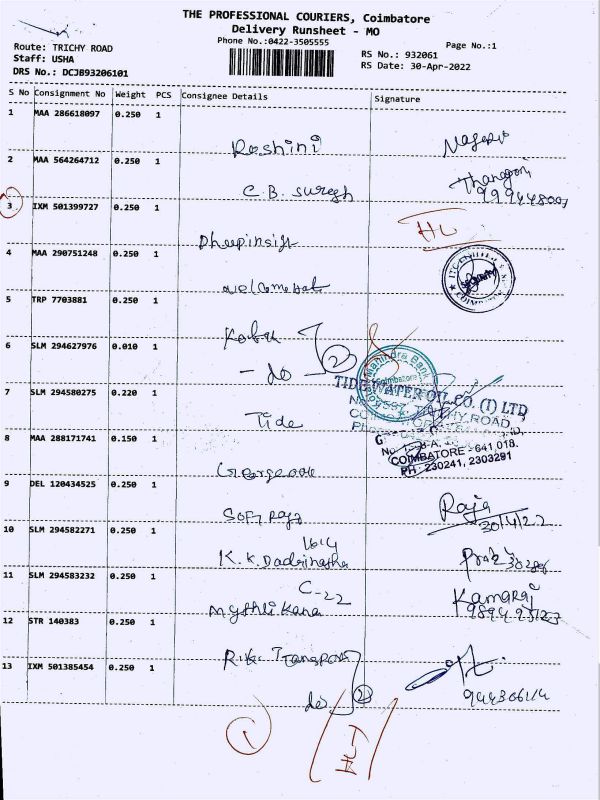 THE PROFESSIONAL COURIERS, Coimbatore
Delivery Runsheet - MO
Phone No.:0422-3505555
Page No.:1
Route: TRICHY ROAD
Staff: USHA
DRS No.: DCJB93206101
RS No.: 932061
RS Date: 30-Apr-2022
S No Consignment No Weight PCS Consignee Details Signature
1 MAA 286618097 0.250 1
Roshini
2 MAA 564264712 0.250 1
C.B. Suresh
Thangam
3 IXM 501399727 0.250 1
HL
4 MAA 290751248 0.250 1
5 TRP 7703881 0.250 1
Kotak
6 SLM 294627976 0.010 1
- do 2
7 SLM 294580275 0.220 1
Tide
TIDE WATER OIL CO. (I) LTD
TRICHY ROAD,
8 MAA 288171741 0.150 1
COIMBATORE - 641 018.
PH : 230241, 2303291
9 DEL 120434525 0.250 1
Raja
30/4/22
10 SLM 294582271 0.250 1
1614
11 SLM 294583232 0.250 1
C-22
Kamaraj
12 STR 140383 0.250 1
Transport
13 IXM 501385454 0.250 1
do 2
1
HL